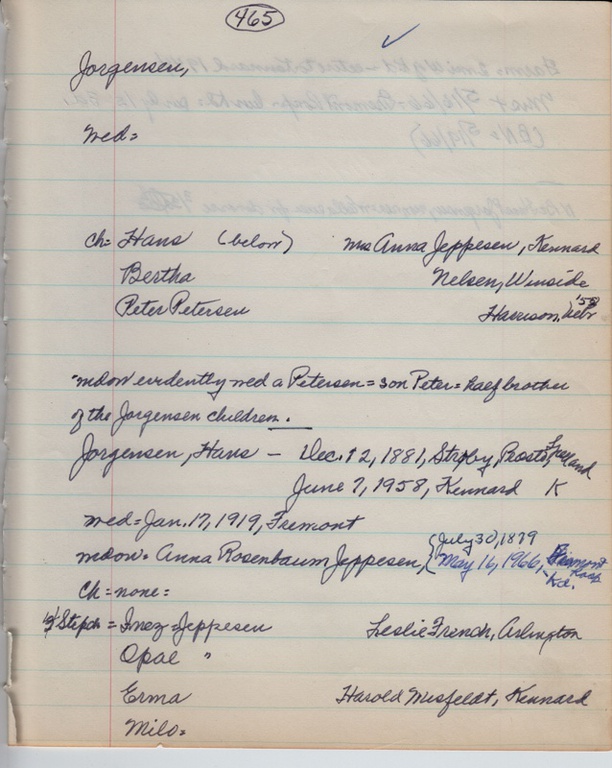 465
Jorgensen,
wed=
ch= Hans (below) mrs Anna Jeppesen, Kennard
Bertha Nelsen, Winside
Peter Petersen Harrison, Nebr '58
wdow evidently wed a Petersen = son Peter = half brother
of the Jorgensen children.
Jorgensen, Hans - Dec. 12, 1881,
June 7, 1958, Kennard K
wed= Jan. 17, 1919, Fremont
wdow= Anna Rosenbaum Jeppesen, (July 30), 1879
May 16, 1966, Fremont Hosp. Kd.
Ch= none=
Stepch = Inez = Jeppesen Leslie French, Arlington
Opal "
Erma Harold Misfeldt, Kennard
Milo=